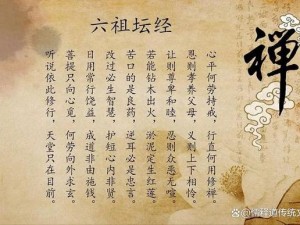 六祖坛经
禪
心平何劳持戒，行直何用修禅。
恩则孝养父母，义则上下相怜。
让则尊卑和睦，忍则众恶无喧。
若能钻木出火，淤泥定生红莲。
苦口的是良药，逆耳必是忠言。
改过必生智慧，护短心内非贤。
日用常行饶益，成道非由施钱。
菩提只向心觅，何劳向外求玄。
听说依此修行，天堂只在目前。
@儒释道传统文